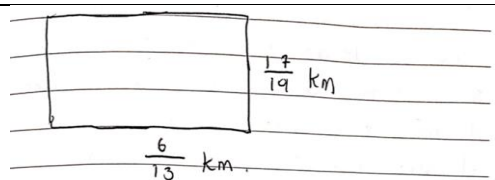 17/19 km
6/13 km.